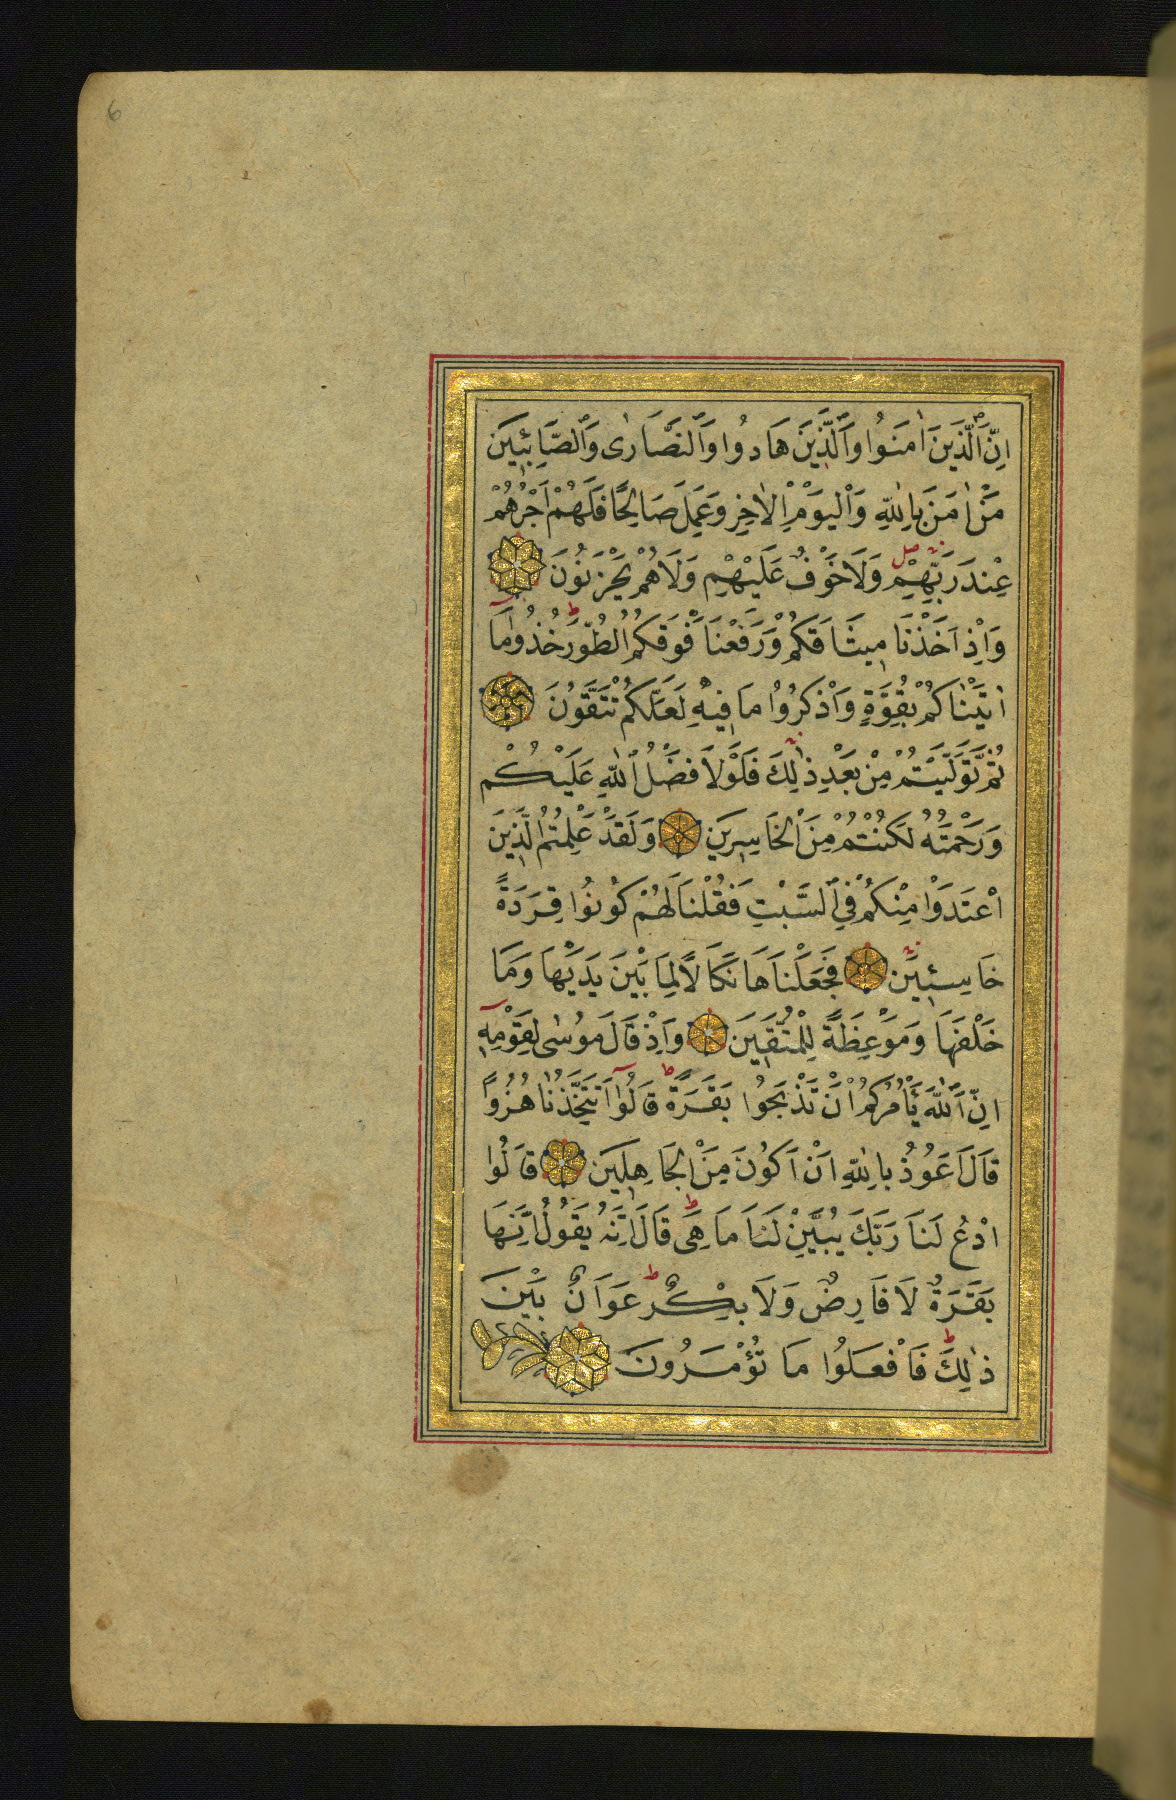 6
اِنَّ الَّذِينَ اٰمَنُوا وَالَّذِينَ هَادُوا وَالنَّصَارٰى وَالصَّابِئِينَ
مَنْ اٰمَنَ بِاللّٰهِ وَالْيَوْمِ الْاٰخِرِ وَعَمِلَ صَالِحًا فَلَهُمْ اَجْرُهُمْ
عِنْدَ رَبِّهِمْ وَلَا خَوْفٌ عَلَيْهِمْ وَلَا هُمْ يَحْزَنُونَ
وَاِذْ اَخَذْنَا مِيثَاقَكُمْ وَرَفَعْنَا فَوْقَكُمُ الطُّورَ خُذُوا مَا
اٰتَيْنَاكُمْ بِقُوَّةٍ وَاذْكُرُوا مَا فِيهِ لَعَلَّكُمْ تَتَّقُونَ
ثُمَّ تَوَلَّيْتُمْ مِنْ بَعْدِ ذٰلِكَ فَلَوْلَا فَضْلُ اللّٰهِ عَلَيْكُمْ
وَرَحْمَتُهُ لَكُنْتُمْ مِنَ الْخَاسِرِينَ وَلَقَدْ عَلِمْتُمُ الَّذِينَ
اعْتَدَوْا مِنْكُمْ فِي السَّبْتِ فَقُلْنَا لَهُمْ كُونُوا قِرَدَةً
خَاسِئِينَ فَجَعَلْنَاهَا نَكَالًا لِمَا بَيْنَ يَدَيْهَا وَمَا
خَلْفَهَا وَمَوْعِظَةً لِلْمُتَّقِينَ وَاِذْ قَالَ مُوسٰى لِقَوْمِهِ
اِنَّ اللّٰهَ يَأْمُرُكُمْ اَنْ تَذْبَحُوا بَقَرَةً قَالُوا اَتَتَّخِذُنَا هُزُوًا
قَالَ اَعُوذُ بِاللّٰهِ اَنْ اَكُونَ مِنَ الْجَاهِلِينَ قَالُوا
ادْعُ لَنَا رَبَّكَ يُبَيِّنْ لَنَا مَا هِيَ قَالَ اِنَّهُ يَقُولُ اِنَّهَا
بَقَرَةٌ لَا فَارِضٌ وَلَا بِكْرٌ عَوَانٌ بَيْنَ
ذٰلِكَ فَافْعَلُوا مَا تُؤْمَرُونَ